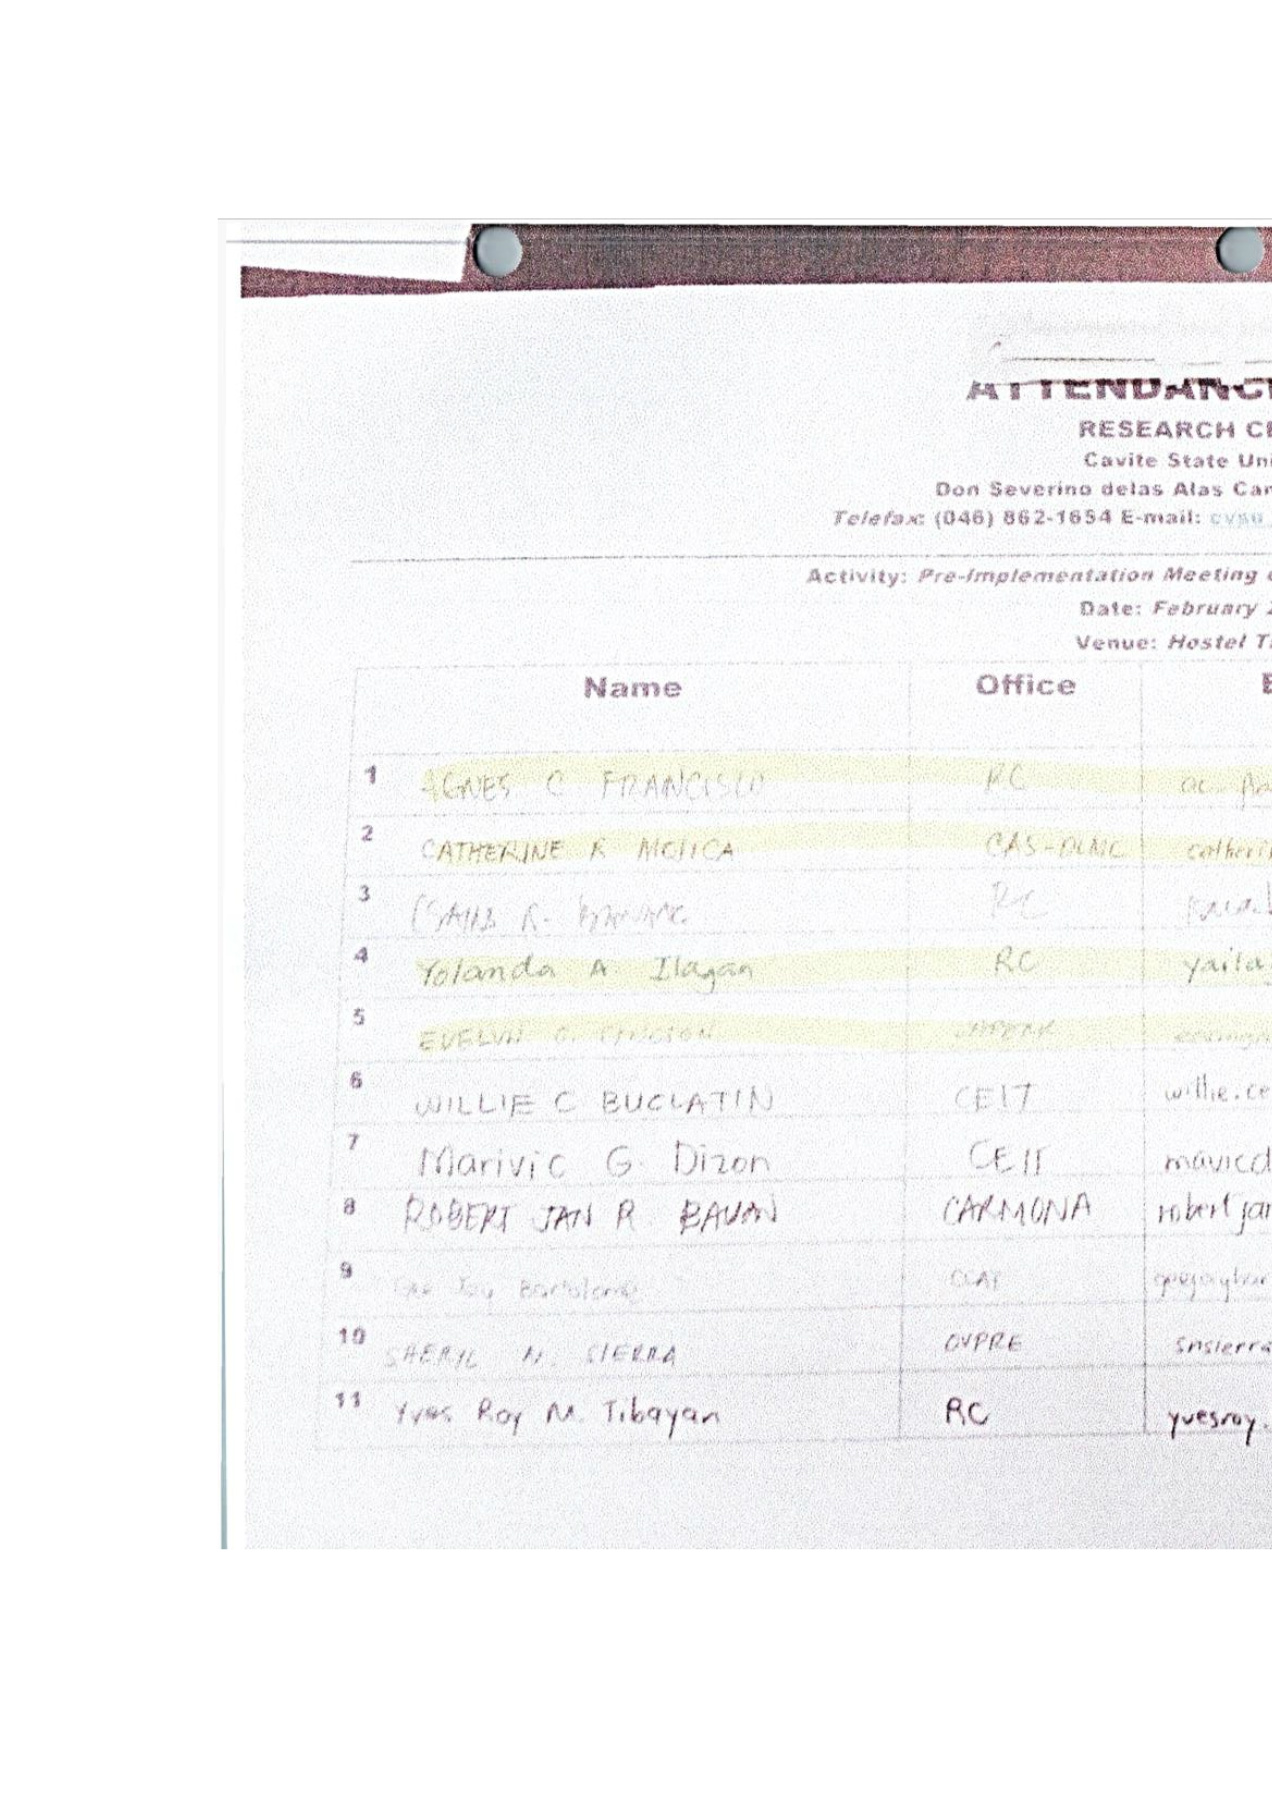 ATTENDANC
RESEARCH CE
Cavite State Uni
Don Severino delas Alas Cam
Telefax: (046) 862-1654 E-mail: cvsu
Activity: Pre-Implementation Meeting
Date: February 2
Venue: Hostel T
Name Office E
1 AGNES C FRANCISCO RC ac.
2 CATHERINE R MOJICA CAS- catheri
3 R. RC
4 Yolanda A. Ilagan RC yaila
5 EVELYN O.
6 WILLIE C BUCLATIN CEIT willie.ce
7 Marivic G. Dizon CEIT mavicd
8 ROBERT JAN R. BAUAN CARMONA robertjan
9 Joy Bartolome
10 SHERYL N. SIERRA OVPRE snsierra
11 Yves Roy M. Tibayan RC yvesroy.